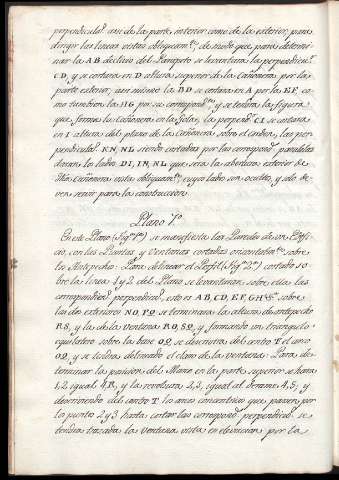 perpendicul.s asi de la parte interior como de la exterior, para
dirigir las lineas vistas obliquam.te, de modo que, para determi-
nar la AB declivo del Parapeto se levantara la perpendicu.l
CD, y se cortara en D altura superior de la Cañonera por la
parte exterior; asi mismo la BD se cortara en A por la EF, co-
mo tambien la HG por su correspond.te y se tendra la figura
que forma la Cañonera en la Gola; la perpend.l CI se cortara
en I altura del plano de la Cañonera sobre el anden, las per-
pendicula.s KN, NL siendo cortadas por las correspond.s paralelas
daran los lados DI, IN, NL que sera la abertura exterior de
dha Cañonera vista obliquam.te, cuyos lados son ocultos, y solo de-
ven servir para la construccion.
Plano 7º
En este Plano (Fig.a 1a) se manifiesta las Paredes de un Edifi-
cio, con las Puertas y Ventanas cortadas orizontalm.te sobre
los Antepechos. Para delinear el Perfil (Fig.a 2a) cortado so-
bre la linea 1 y 2 del Plano se levantaran sobre ella las
correspondien.s perpendicul.s, esto es AB, CD, EF, GH &c.a sobre
las dos exteriores NO, PQ se terminara la altura de antepecho
R.S, y la de la ventana RO, SQ y formando un triangulo
equilatero sobre la base OQ se descrivira del centro T el arco
OQ, y se tendra delineado el claro de la ventana. Para de-
terminar la posicion del Marco en la parte superior se hara
1,2 igual 4,R, y la revoltura 2,3, igual al derrame 4,5; y
descriviendo del centro T los arcos concentricos que pasen por
los puntos 2 y 3 hasta cortar las correspond.s perpendicul.s se
tendra trazada la Ventana vista en elevacion por la